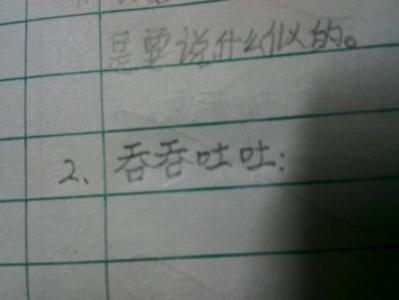 是要说什么似的。
2、吞吞吐吐: